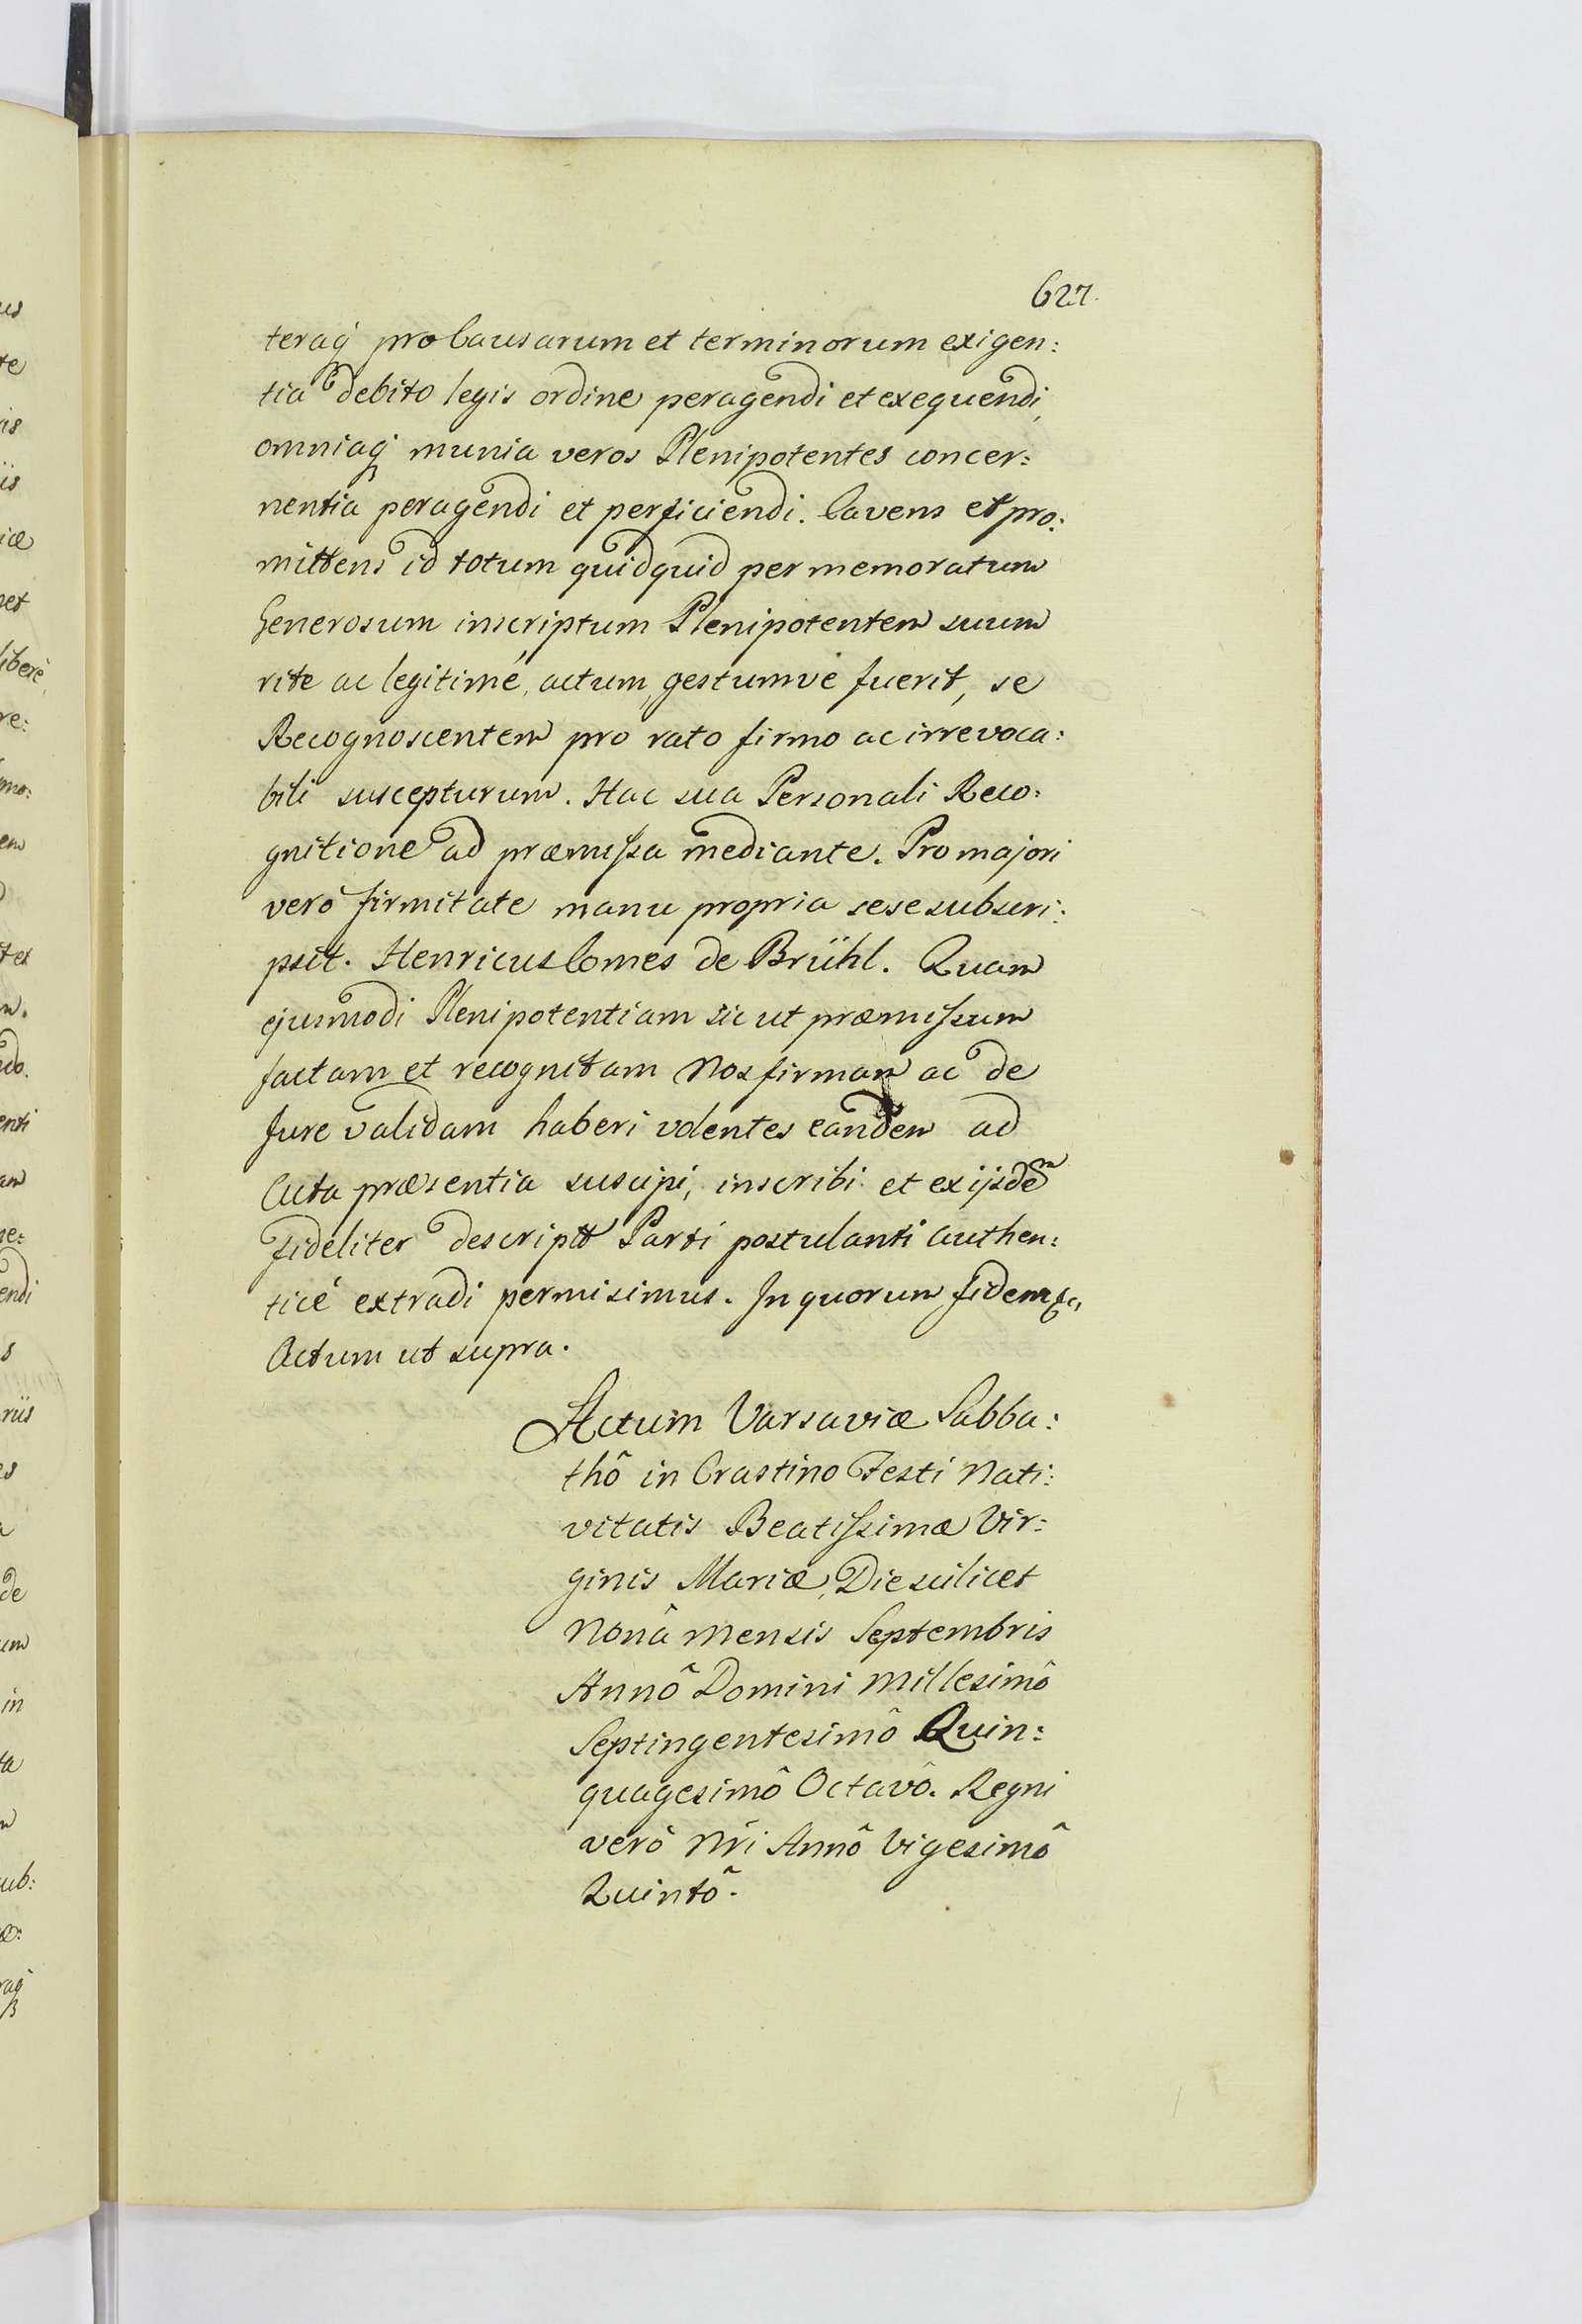 627.
teraq̃ pro Causarum et terminorum exigen:
tia debito legis ordine peragendi et exequendi,
omniaq̃ munia veros Plenipotentes concer:
nentia peragendi et perficiendi. Cavens et pro:
mittens id totum quidquid per memoratum
Generosum inscriptum Plenipotentem suum
rite ac legitimé, actum, gestumve fuerit, se
Recognoscentem pro rato firmo ac irrevoca:
bili suscepturum. Hac sua Personali Reco:
gnitione ad præmissa mediante. Pro majori
verò firmitate manu propria sese subscri:
psit. Henricus Comes de Brühl. Quam
ejusmodi Plenipotentiam sic ut præmissum
factam et recognitam Nos firmam ac de
Jure validam haberi volentes eandem ad
Acta præsentia suscipi, inscribi et ex ijsdem
fideliter descriptt Parti postulanti Authen:
ticé extradi permisimus. In quorum fidem &c,
Actum ut supra.
Actum Varsaviæ Sabba:
thô in Crastino Festi Nati:
vitatis Beatissimæ Vir:
ginis Mariæ, Die scilicet
Nonâ Mensis Septembris
Annô Domini Millesimô
Septingentesimô Quin:
quagesimô Octavô. Regni
verò Nr̃i Annô Vigesimô
Quintô.